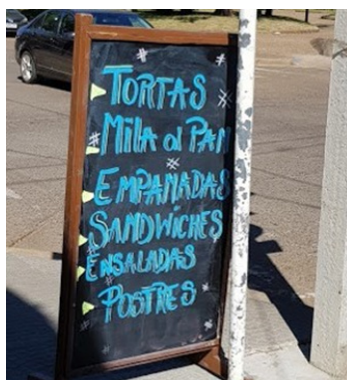 TORTAS
Mila al PAN
EMPANADAS
SANDWICHES
ENSALADAS
POSTRES